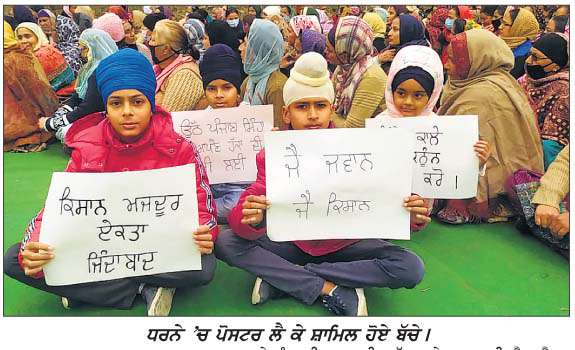 ਕਿਸਾਨ ਮਜਦੂਰ
ਏਕਤਾ
ਜਿੰਦਾਬਾਦ
ਪੰਜਾਬ ਸਿੰਹਾਂ
ਹੱਕਾਂ ਦੀ
ਲਈ
ਜੈ ਜਵਾਨ
ਜੈ ਕਿਸਾਨ
ਕਾਲੇ
ਕਰੋ।
ਧਰਨੇ ’ਚ ਪੋਸਟਰ ਲੈ ਕੇ ਸ਼ਾਮਿਲ ਹੋਏ ਬੱਚੇ।